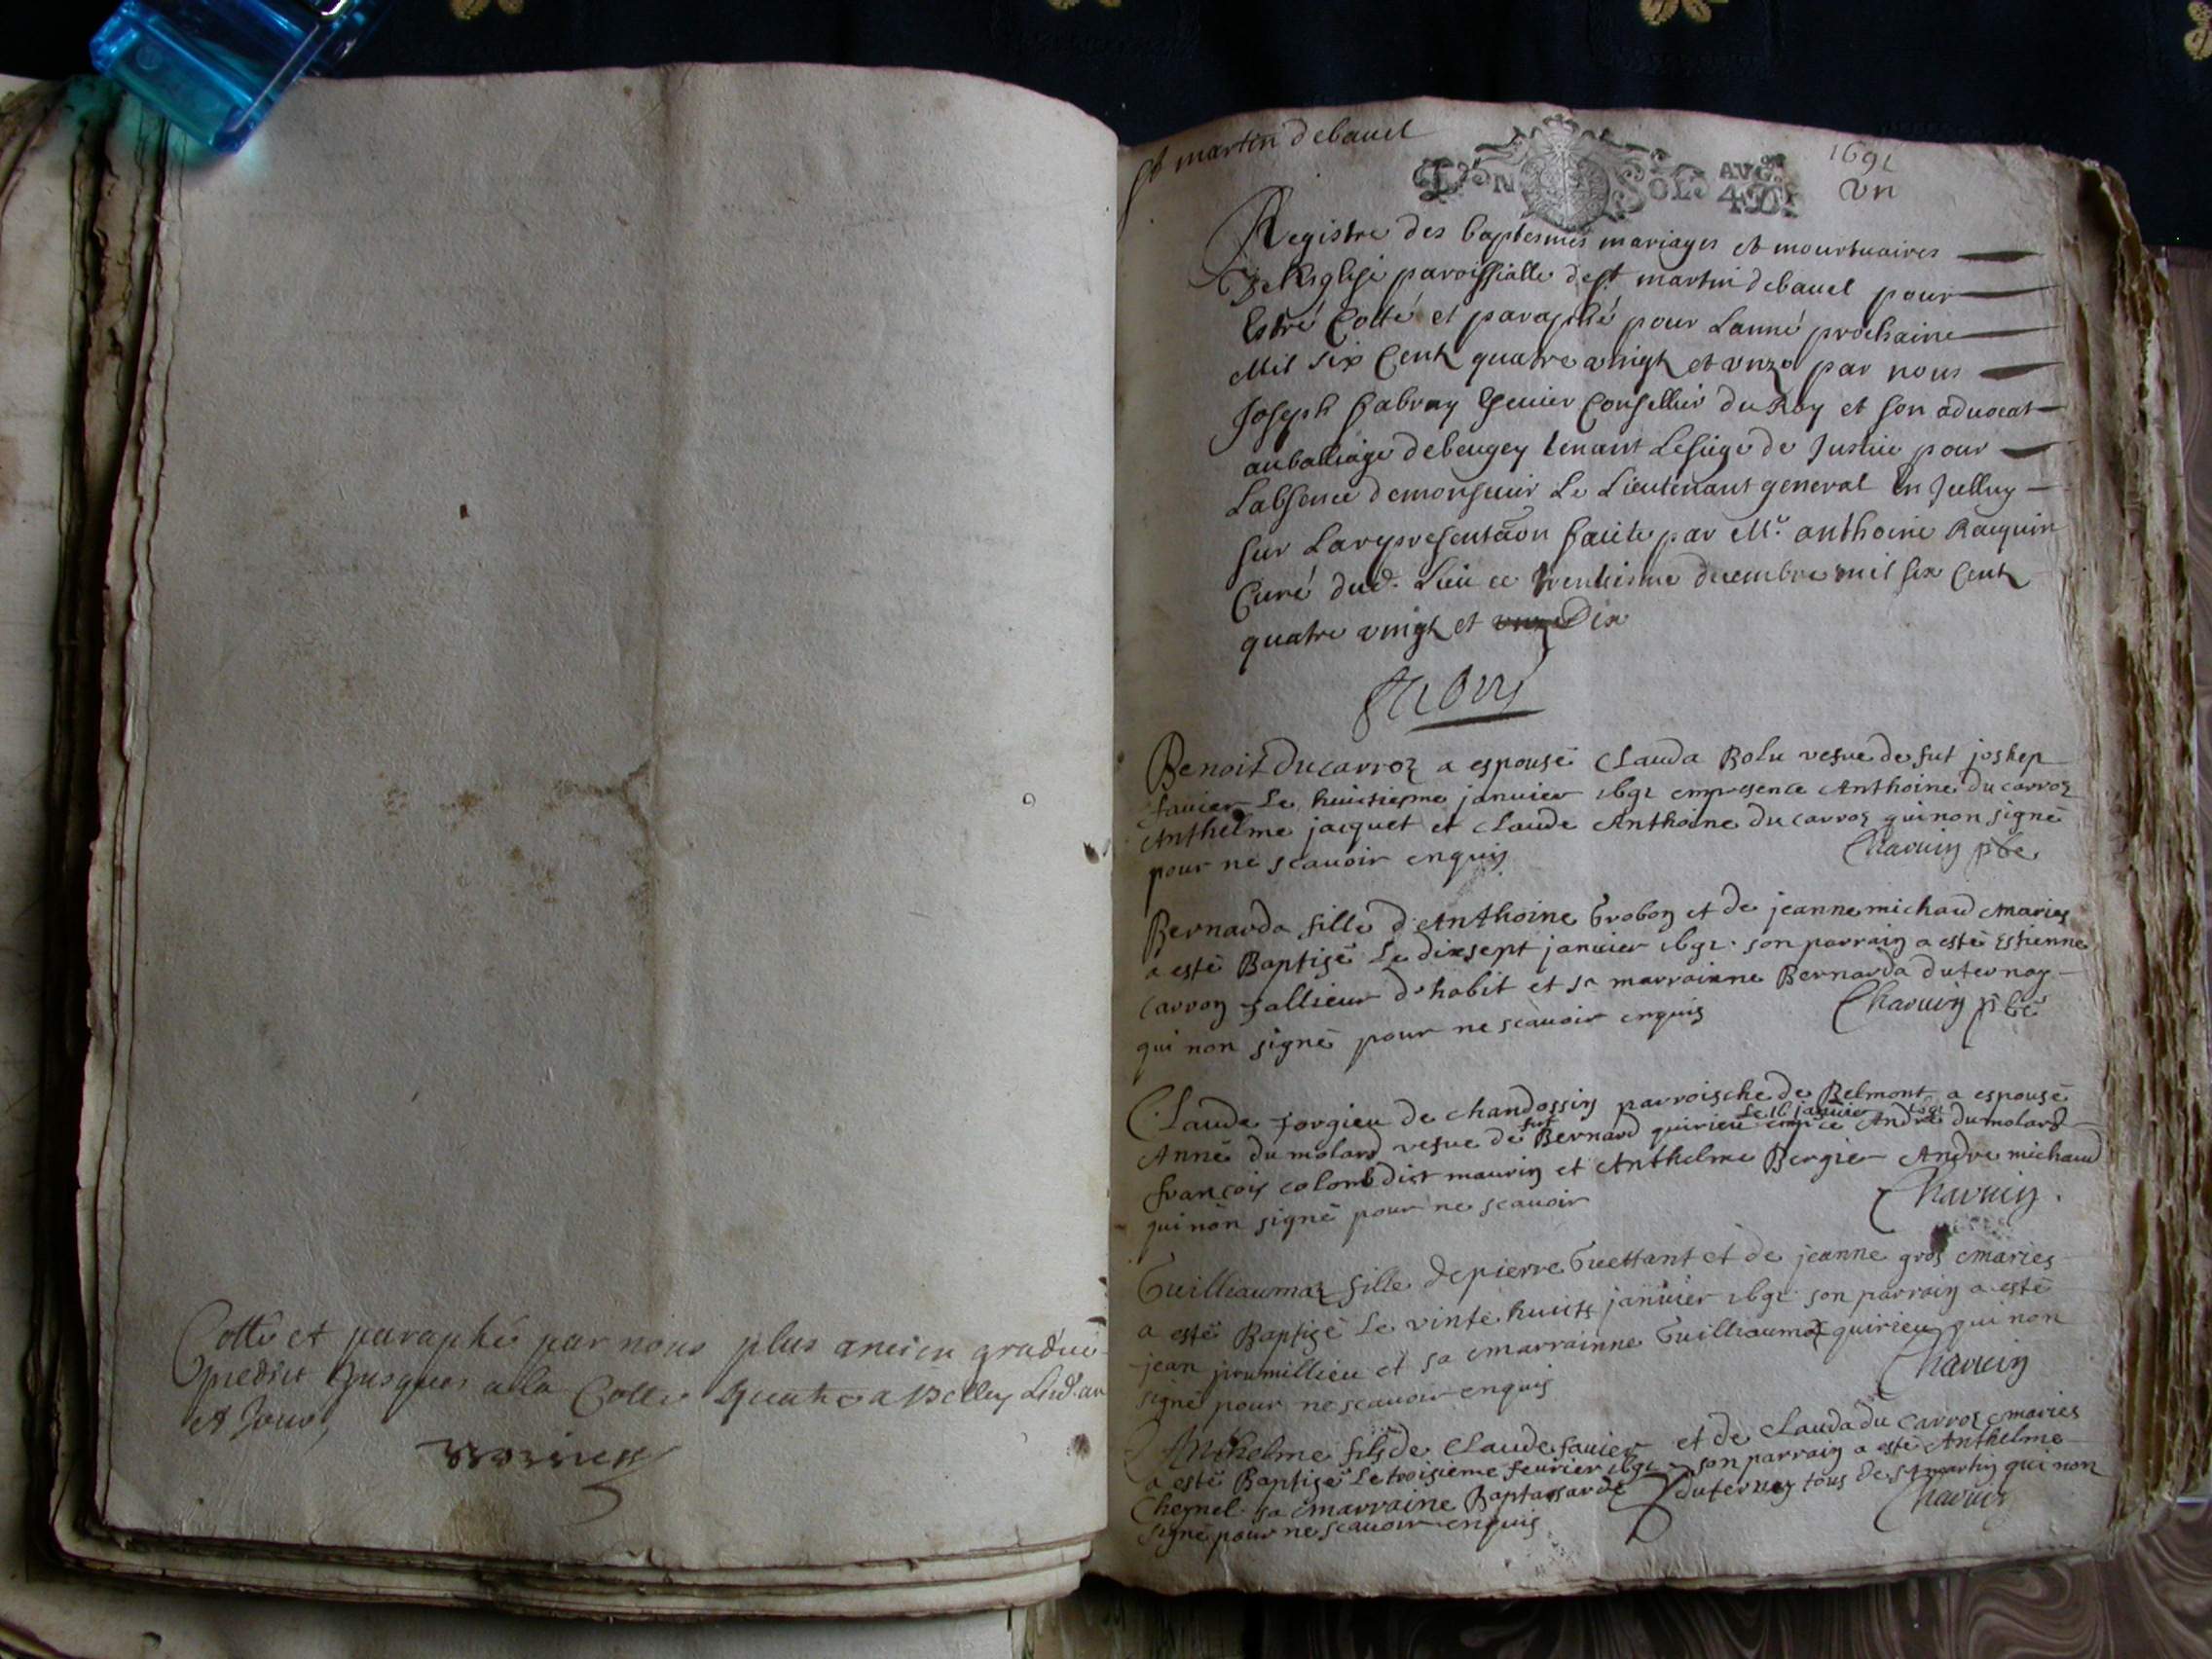 Cotté et paraphé par nous plus ancien gradué
susdit jusques a la Cotte quatre a Belley Led. an
et Jour
St martin de bauel
SOLS AVG. 4 D.
1691
vn
Registre des baptesmes mariages et mourtuaires
De Lesglise paroissialle de st martin de bauel pour
Estre Cotté et paraphé pour Lanné prochaine
Mil six Cent quatre vingt et vnze par nous
Joseph fabry Escuier Conseillier du Roy et son aduocat
au balliage de beugey tenant Le siege de Justice pour
Labsence de monsieur Le Lieutenant general
sur La representaon faite par Mr. anthoine Racquin
Curé dud. Lieu ce trentiesme decembre mil six Cent
quatre vingt et Dix
fabry
Benoit Ducarroz a espousé Clauda Bolu vesue de fut joshep
fauier Le huictieme januier 1691 empresence Anthoine du carroz
Anthelme jacquet et Claude Anthoine du carroz qui non signé
pour ne scauoir enquis
Charuin pbre
Bernarda fille d'Anthoine Grobon et de jeanne michaud maries
a esté Baptisé Le dixsept januier 1691. son parrain a esté Estienne
Carron tallieur d'habit et sa marrainne Bernarda duternay
qui non signé pour ne scauoir enquis
Charuin pbre
Claude forgieu de chandossin parroische de Belmont a espousé
Le 16 januier 1691
Anne du molard vesue de fut Bernard quirieu empce André du molard
françois colomb dist maurin et Anthelme Bergier Andre michaud
qui non signé pour ne scauoir
Charuin.
Guilliaumaz fille de pierre Guettant et de jeanne gros maries
a esté Baptisé Le vinte huict januier 1691 son parrain a esté
jean joumillieu et sa marrainne Guilliauma quirieu qui non
signé pour ne scauoir enquis
Charuin
Anthelme fils de Claude fauier et de Clauda du carroz maries
a esté Baptisé Le troisieme feurier 1691 son parrain a esté Anthelme
Cheynel sa marraine duternay tous de St martin qui non
signé pour ne scauoir enquis
Charuin